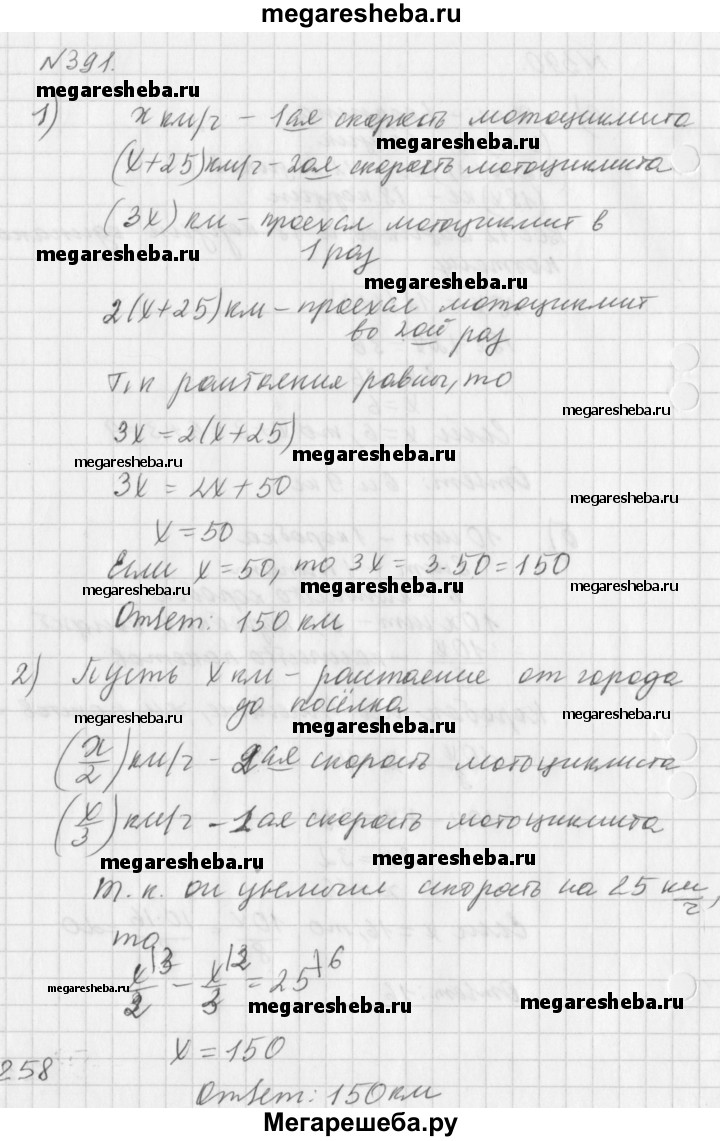 megaresheba.ru
N391.
megaresheba.ru
1) x км/г - 1ая скорость мотоциклиста
megaresheba.ru
(x+25) км/г - 2ая скорость мотоциклиста
(3x) км - проехал мотоциклист в
megaresheba.ru
1 раз
megaresheba.ru
2(x+25) км - проехал мотоциклист
во 2ой раз
Т.к расстояния равны, то
megaresheba.ru
3x = 2(x+25)
megaresheba.ru
megaresheba.ru
3x = 2x + 50
x = 50
Если x = 50, то 3x = 3·50 = 150
megaresheba.ru
megaresheba.ru
Ответ: 150 км
2) Пусть x км - расстояние от города
до посёлка
megaresheba.ru
megaresheba.ru
(x/2) км/г - 2ая скорость мотоциклиста
(x/3) км/г - 1ая скорость мотоциклиста
megaresheba.ru
megaresheba.ru
т.к. он увеличил скорость на 25 км/г,
то
x/2 |3 - x/3 |2 = 25 |6
megaresheba.ru
megaresheba.ru
megaresheba.ru
x = 150
258
Ответ: 150 км
Мегарешеба.ру